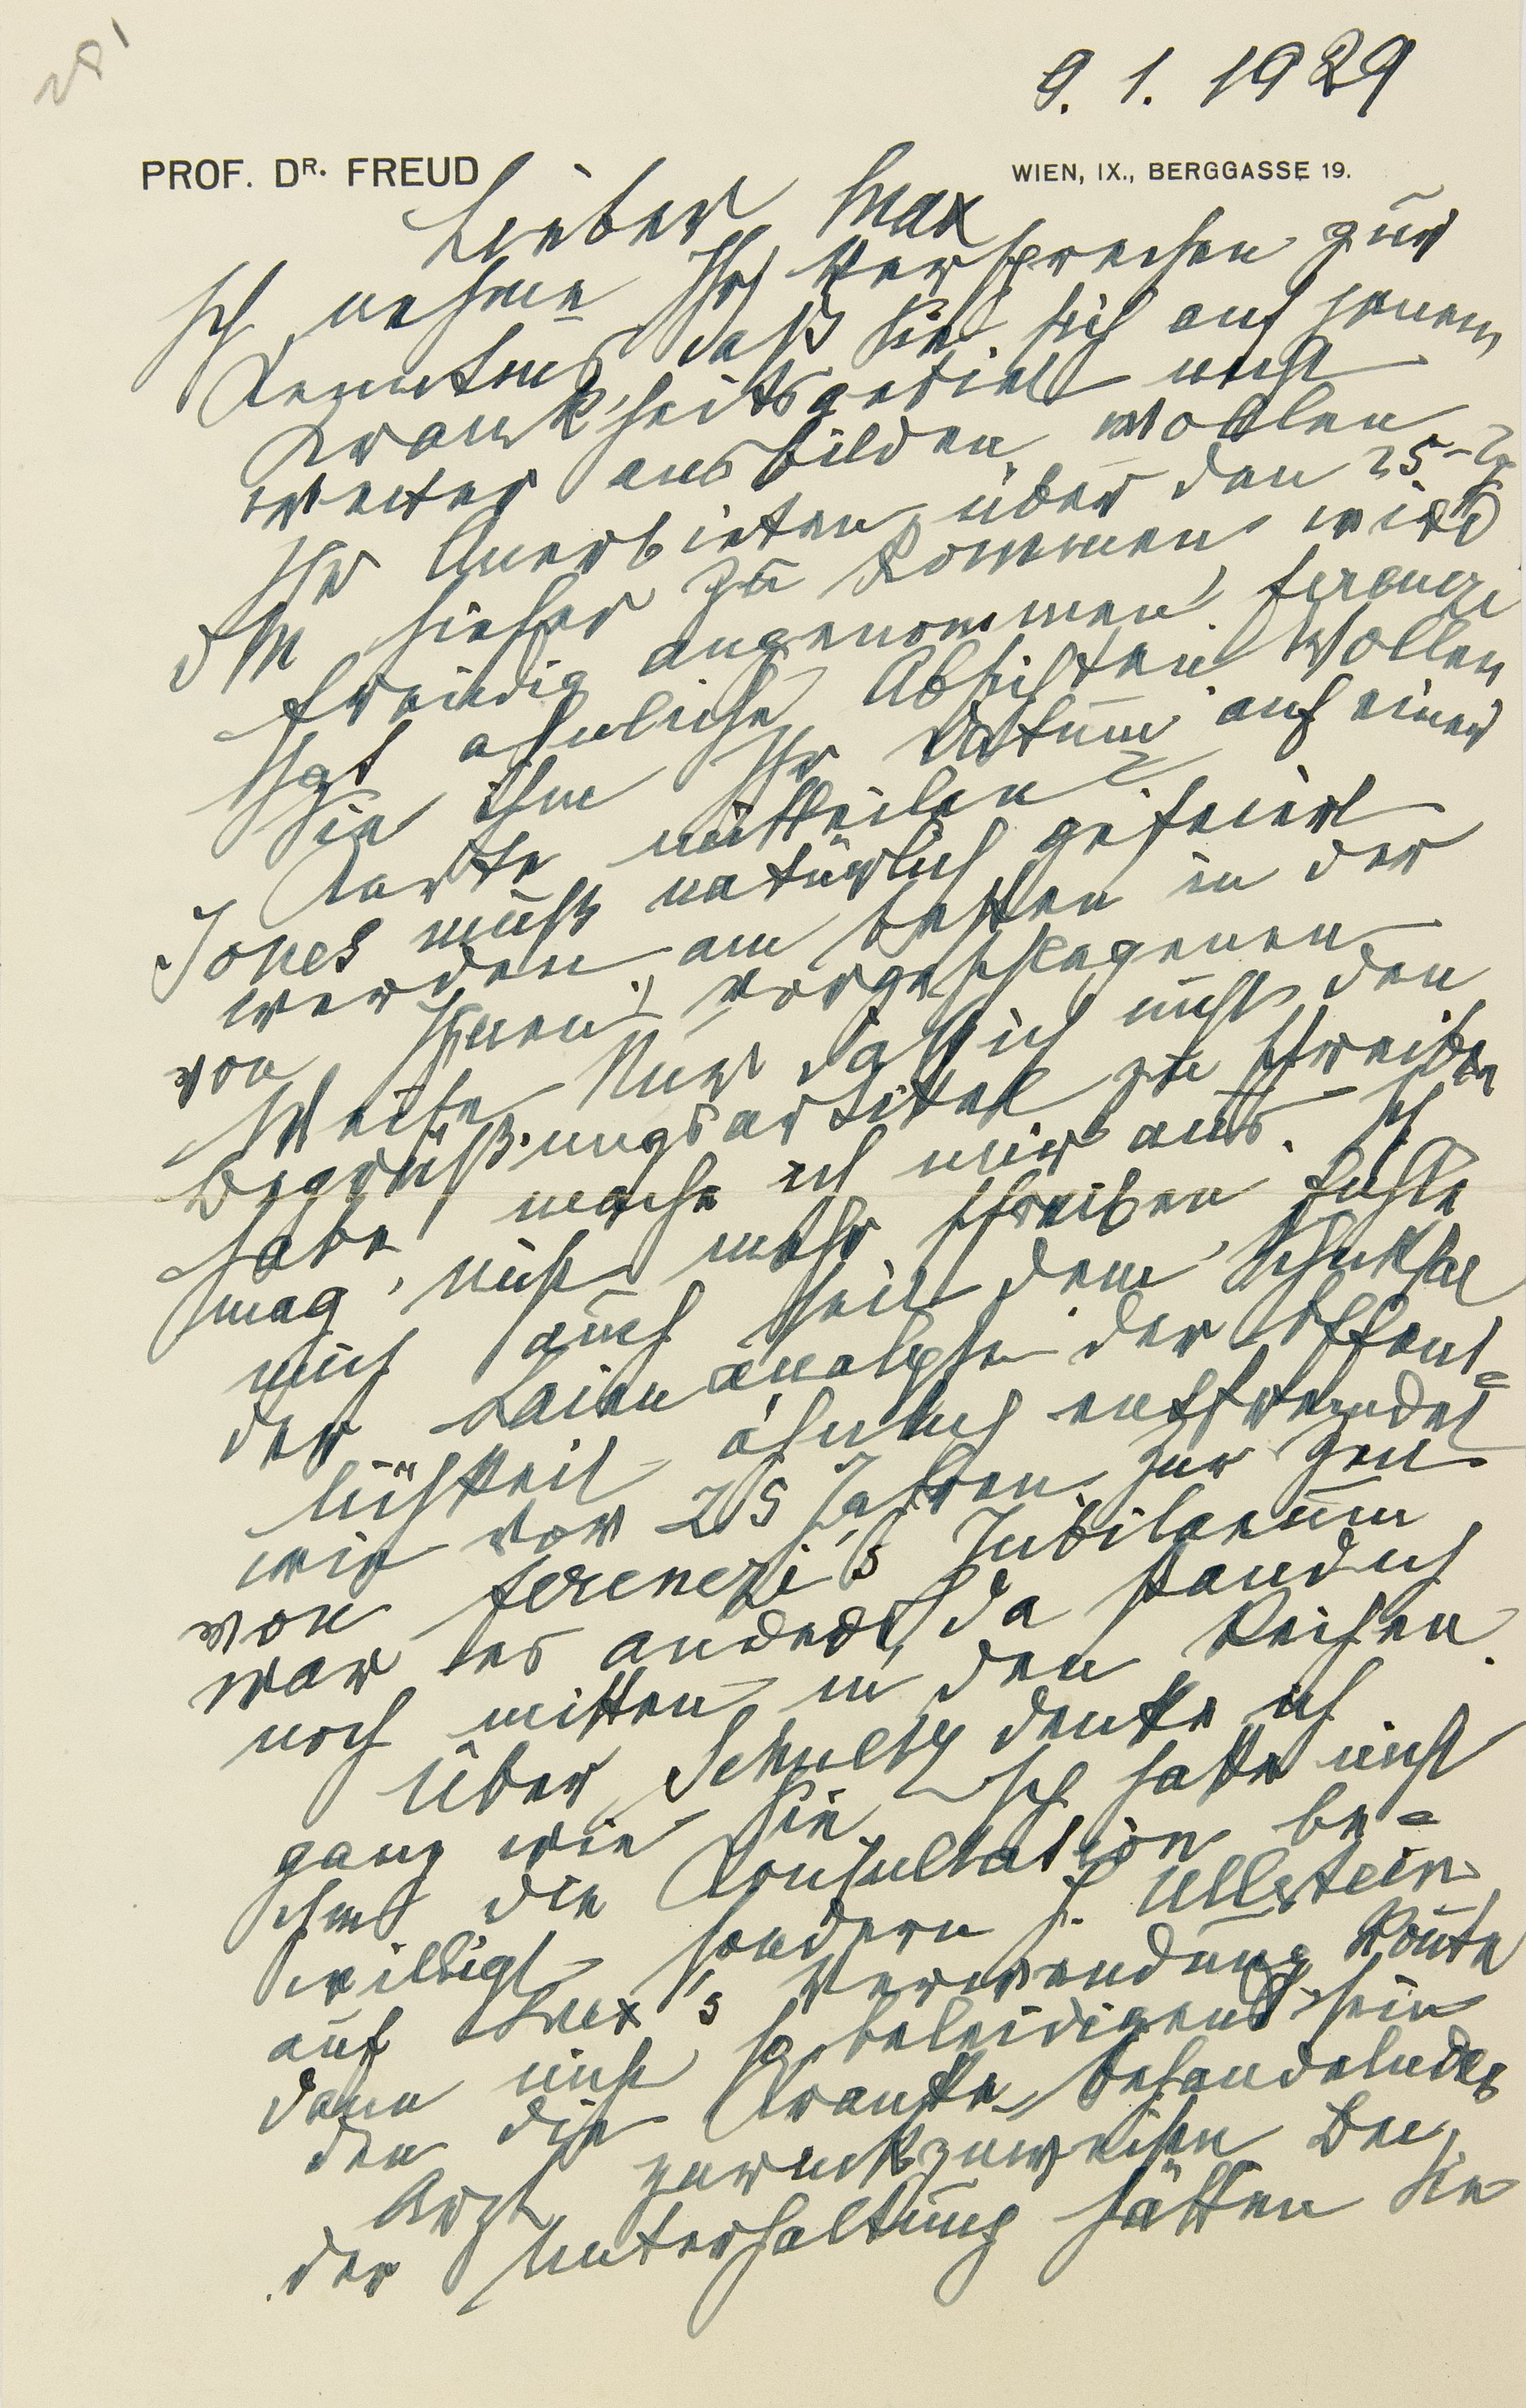 9. 1. 1929
PROF. DR. FREUD
WIEN, IX., BERGGASSE 19.
Lieber Max
Ich nehme Ihr Versprechen zur
Kenntnis daß Sie sich auf jenem
Krankheitsgebiet nicht
weiter ausbilden wollen
Ihr Anerbieten, über den 25-27
d M hieher zu kommen wird
freudig angenommen. Ferenczi
hat ähnliche Absichten. Wollen
Sie ihm Ihr Datum auf einer
Karte mitteilen?
Jones muß natürlich gefeiert
werden, am besten in der
von Ihnen vorgeschlagenen
Weise. Nur daß ich nicht den
Begrüßungsartikel zu schreiben
habe mache ich mir aus. Ich
mag nicht mehr schreiben fühle
mich auch seit dem Schicksal
der Laienanalyse der Öffent-
lichkeit ähnlich entfremdet
wie vor 25 Jahren. Zur Zeit
von Ferenczi's Jubilaeum
war es anders, da stand ich
noch mitten in den Reihen.
Über Schultz denke ich
ganz wie Sie. Ich hatte nicht
ihm die Konsultation be-
willigt, sondern f. Ullstein
auf Lux's Verwendung konnte
dann nicht so beleidigend sein
den die Kranke behandelnden
Arzt zurückzuweisen. Bei
der Unterhaltung hätten Sie